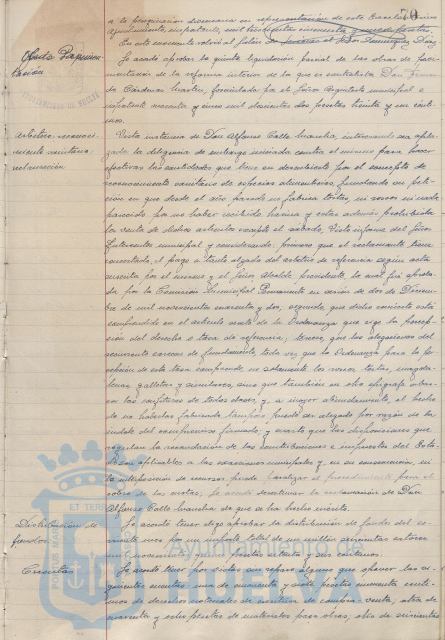 70
a la peregrinación diocesana en representación de este Excelentísimo
Ayuntamiento, importante, mil trescientas cincuenta y nueve pesetas.
En este momento volvió al Salón
Obras Pavimentación
Se acordó aprobar la quinta liquidación parcial de las obras de pavimentación de la reforma interior de la que es contratista Don
Cárdenas formulada por el Señor Arquitecto municipal e
importante y cinco mil doscientas dos pesetas treinta y un céntimos.
Arbitrio reconocimiento sanitario, reclamación
Vista instancia de Don Alfonso Calle interesando sea aplazada
la diligencia de embargo iniciada contra el mismo para hacer
efectivas las cantidades que tiene en descubierto por el concepto de
reconocimiento sanitario de especias alimenticias, fundando su petición
en que desde el año pasado no fabrica tortas, ni roscos ni nada
parecido por no haber recibido harina y estar además prohibida
la venta de dichos artículos excepto el sábado. Visto informe del Señor
Interventor municipal y considerando: primero que el reclamante tiene
concertado el pago a tanto alzado del arbitrio de referencia según acta
suscrita por el mismo y el Señor Alcalde Presidente, la cual fué aprobada
por la Comisión Municipal Permanente en sesión de dos de Diciembre
de mil novecientos cuarenta y dos, segundo, que dicho concierto está
comprendido en el artículo de la Ordenanza que rige la percepción
del derecho o tasa de referencia; tercero, que las alegaciones del
recurrente carecen de fundamento, toda vez que la Ordenanza para la percepción
de esta tasa comprende, no solamente los roscos, tortas, magdalenas
galletas y similares, sino que también en otro epígrafe
los confituras de todas clases, y, a mayor abundamiento, el hecho
de no haberlas fabricado tampoco puede ser alegado por razón de la
índole del compromiso firmado; y cuarto que las disposiciones que
regulan la recaudación de las contribuciones e impuestos del Estado
son aplicables a las exacciones municipales y, en su consecuencia, ni
la interposición de recursos puede paralizar el procedimiento para el
cobro de las cuotas, se acordó desestimar la reclamación de Don
Alfonso Calle de que se ha hecho mérito.
Distribución de fondos
Se acordó tener digo aprobar la distribución de fondos del corriente
mes por un importe total de un millón
pesetas ochenta y un céntimos.
Cuentas
Se acordó tener por vistas sin reparo alguno que oponer las siguientes
cuentas: una de cuarenta y siete pesetas cincuenta céntimos
de derechos notariales de escritura de compra-venta, otra de
cuarenta y ocho pesetas de materiales para obras, otra de seiscientas
ET TERRÆ
PORTUS MARIS
Ayuntamiento
HUELVA